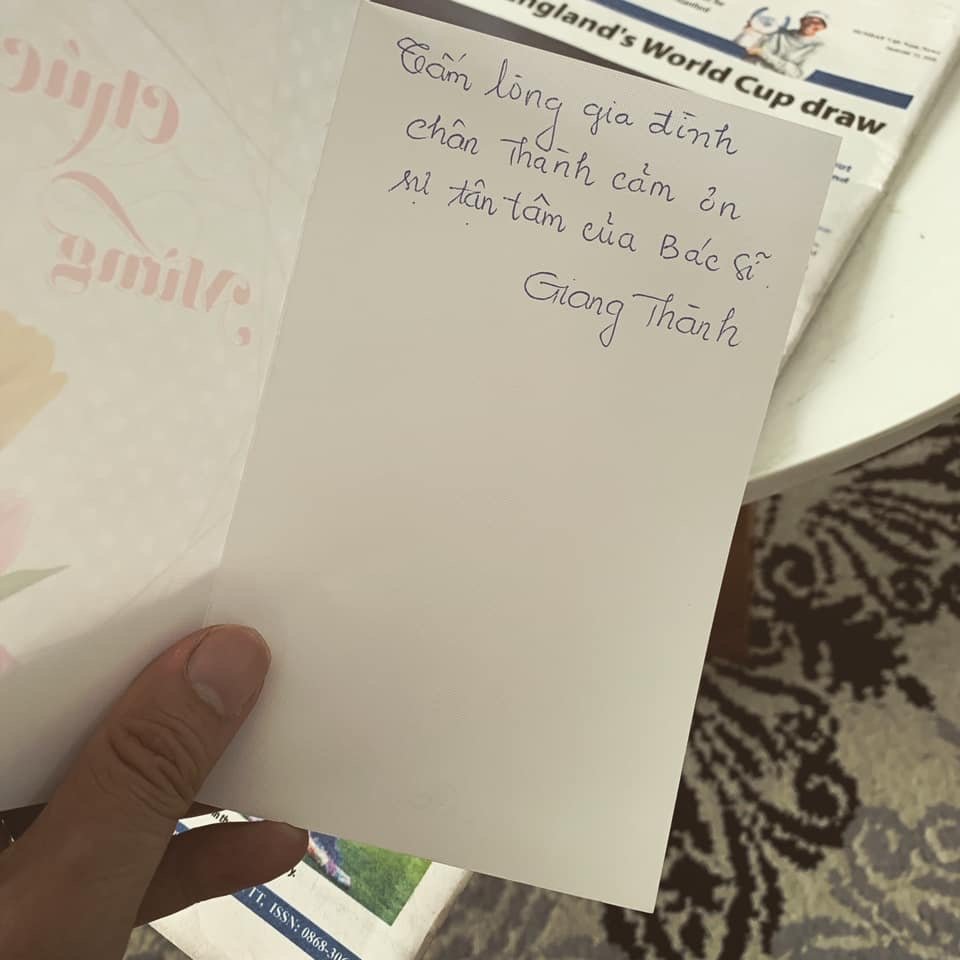 England's World Cup draw
Chúc
Mừng
Tấm lòng gia đình
chân Thành cảm ơn
sự tận tâm của Bác sĩ.
Giang Thành
TT, ISSN: 0868-30